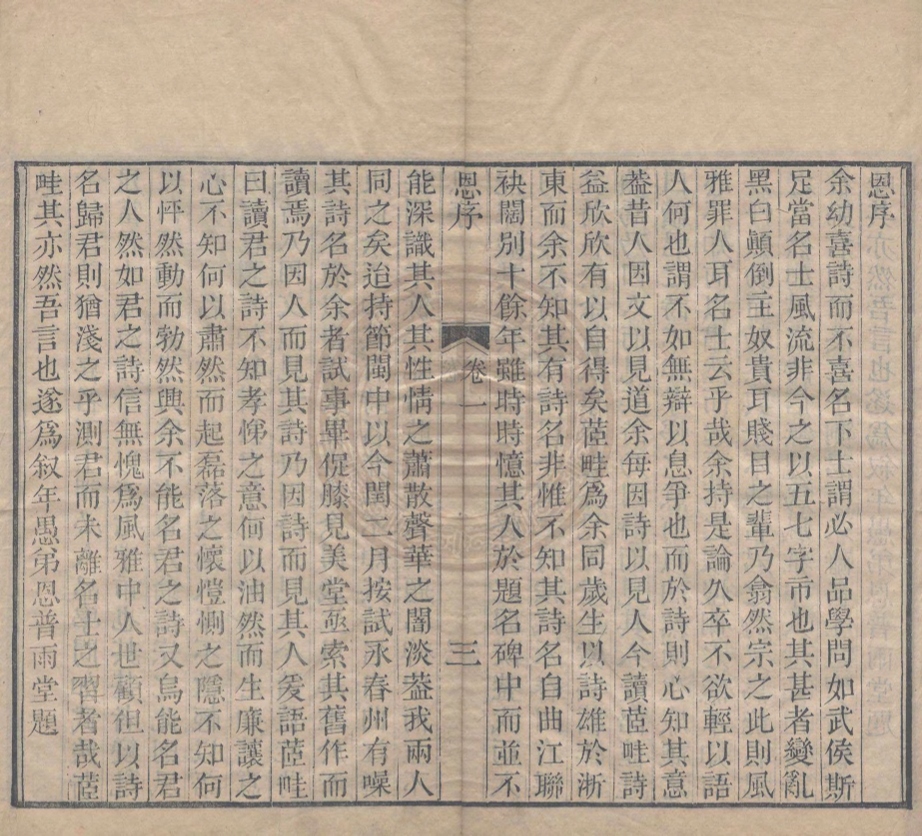 恩序
余幼喜詩而不喜名下士謂必人品學問如武侯斯
足當名士風流非今之以五七字市也其甚者變亂
黑白顛倒主奴貴耳賤目之輩乃翕然宗之此則風
雅罪人耳名士云乎哉余持是論久卒不欲輕以語
人何也謂不如無辯以息爭也而於詩則心知其意
葢昔人因文以見道余每因詩以見人今讀茝畦詩
益欣欣有以自得矣茝畦爲余同歲生以詩雄於浙
東而余不知其有詩名非惟不知其詩名自曲江聯
袂闊別十餘年雖時時憶其人於題名碑中而並不
恩序
卷一
三
能深識其人其性情之蕭散聲華之闇淡葢我兩人
同之矣迨持節閩中以今閏二月按試永春州有噪
其詩名於余者試事畢促膝見美堂亟索其舊作而
讀焉乃因人而見其詩乃因詩而見其人爰語茝畦
曰讀君之詩不知孝悌之意何以油然而生廉讓之
心不知何以肅然而起磊落之懷愷惻之隱不知何
以怦然動而勃然興余不能名君之詩又烏能名君
之人然如君之詩信無愧爲風雅中人也顧但以詩
名歸君則猶淺之乎測君而未離名士之習者哉茝
畦其亦然吾言也遂爲叙年愚弟恩普雨堂題